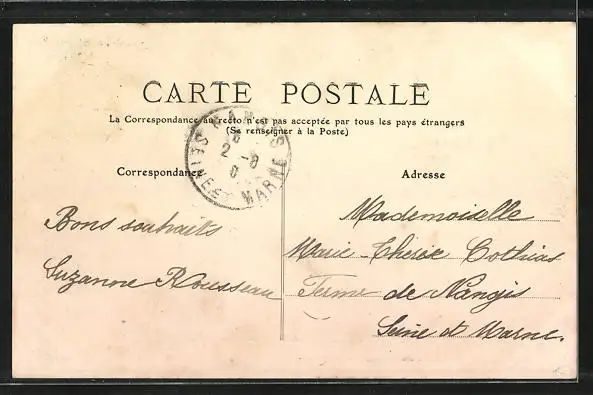 CARTE POSTALE
La Correspondance au recto n'est pas acceptée par tous les pays étrangers
(Se renseigner à la Poste)
Correspondance
Adresse
NANGIS
2 - 8
SEINE ET MARNE
Bons souhaits
Suzanne Rousseau
Mademoiselle
Marie-Thérèse Cothias
Ferme de Nangis
Seine et Marne.